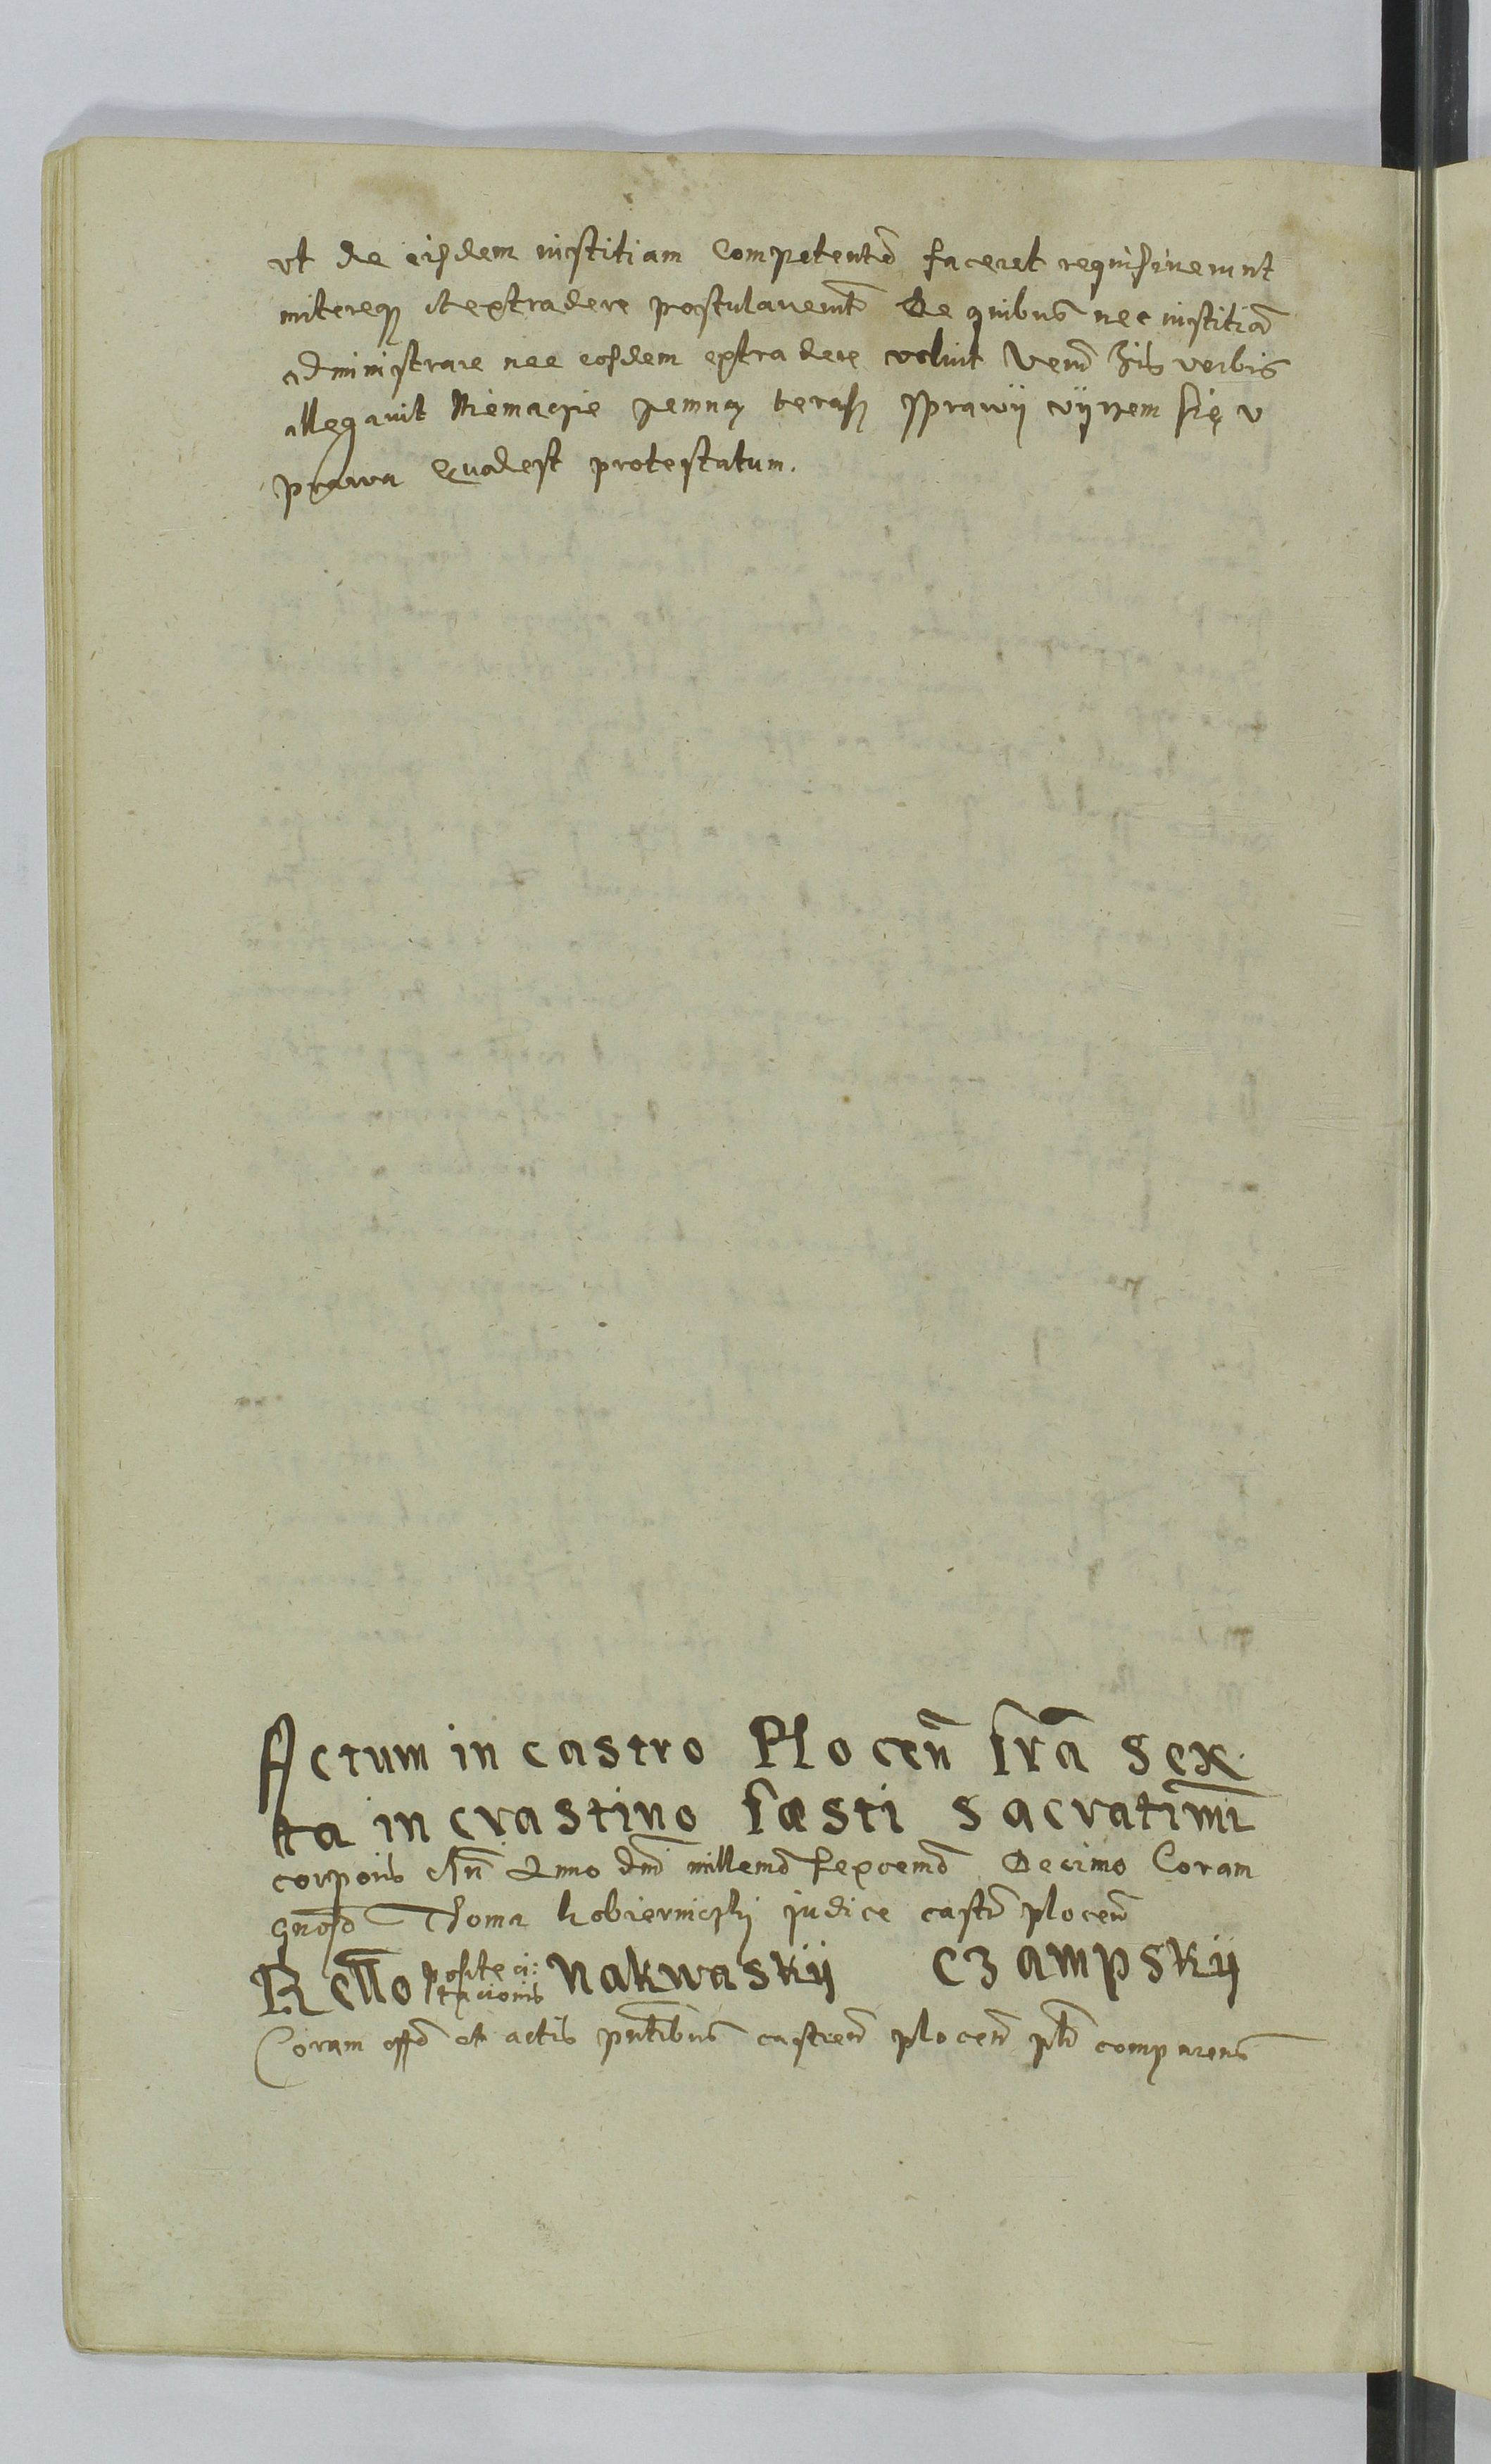 vt de eisdem iustitiam Competentē faceret requisiuerunt
miterequ et extradere postulauerūt De quibus nec iustitiā
administrare nec eosdem extradere voluit Verū his verbis
allegauit Niemacie zemną teraz sprawÿ vÿrzem się v
prawa Quod est protestatum.
Actum in castro Plocen̄ fr̄a sex
ta in crastino fæsti sacratimi
corporis Chr̄i Anno dn̄i millemo sexcenmo Decimo Coram
gn̄oso Thoma Kobiernicki judice castr̄ plocen̄
Rello posite ci:
tacionis Nakwaskÿ Czampskÿ
Coram offō et actis pn̄tibus castren̄ plocen̄ pło comparens